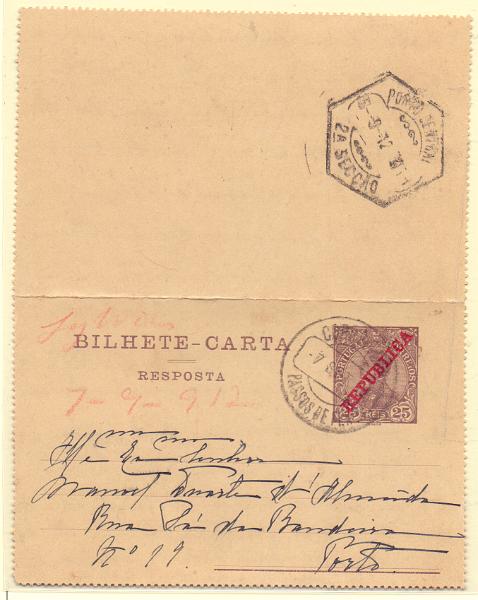 PORTO CENTRAL
2A SECÇÃO
BILHETE-CARTA
RESPOSTA
7-9-912
PORTUGAL
REPUBLICA
25 REIS 25
PASSOS DE
Senhor
Manoel Duarte d'Almeida
Rua Sá da Bandeira
Nº 19
Porto